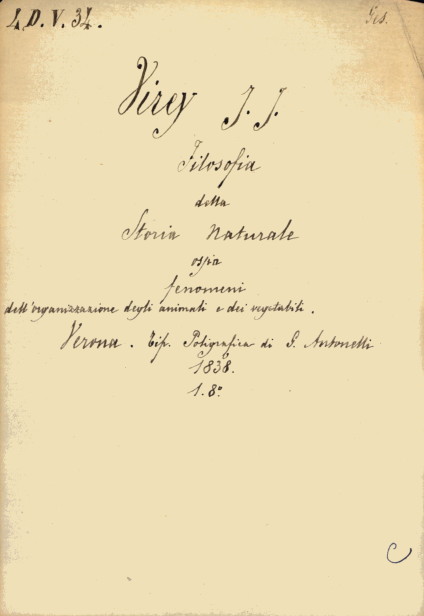 4. D. V. 34.
Ges.
Virey J. J.
Filosofia
della
Storia Naturale
ossia
fenomeni
dell'organizzazione degli animali e dei vegetabili.
Verona. Tip. Poligrafica di G. Antonelli
1838.
1. 8º